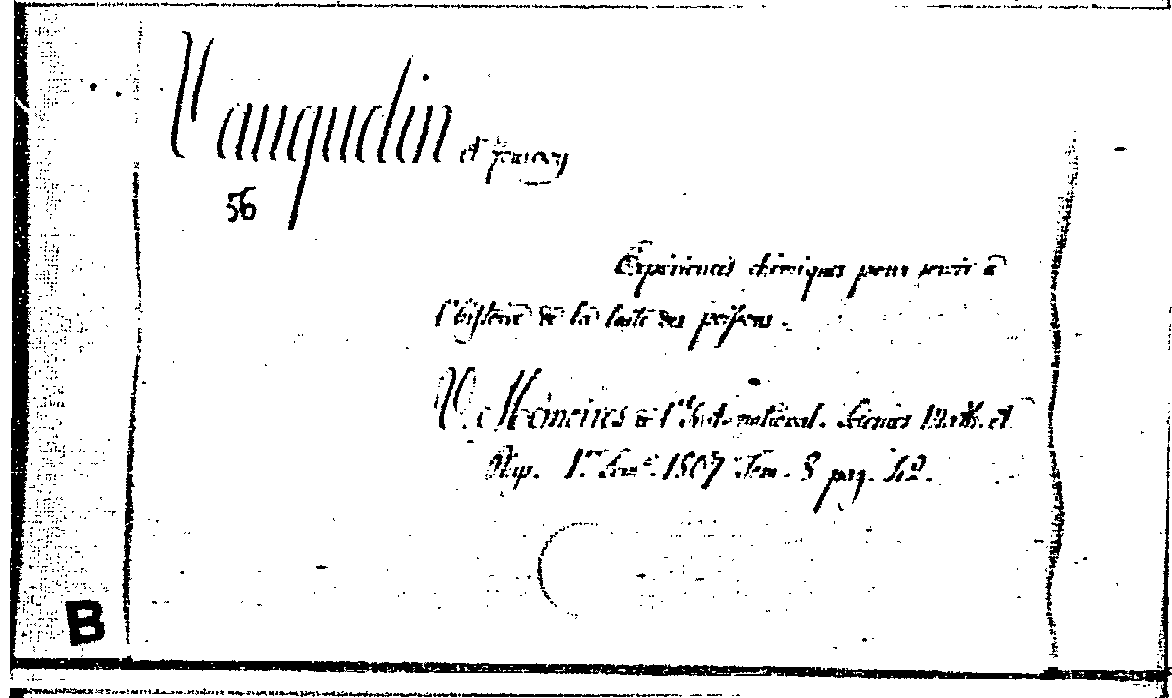 Vauquelin et fourcroy
56
Expériences chimiques pour servir à
l'histoire de la laite des poissons.
V. Mémoires de l'Inst. national. Sciences Math. et
Phys. 1.er Sem.e 1807 Tom. 8 pag. 42.
B